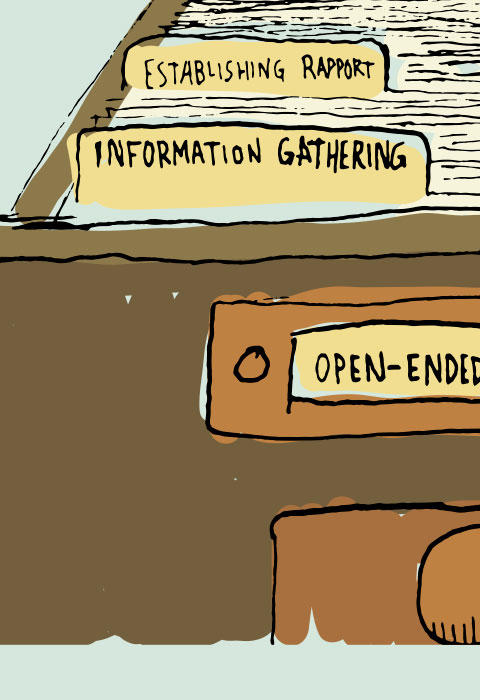 ESTABLISHING RAPPORT
INFORMATION GATHERING
OPEN-ENDED